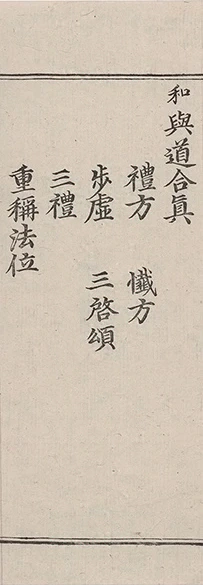 和與道合眞
禮方　懴方
步虛　三啓頌
三禮
重稱法位